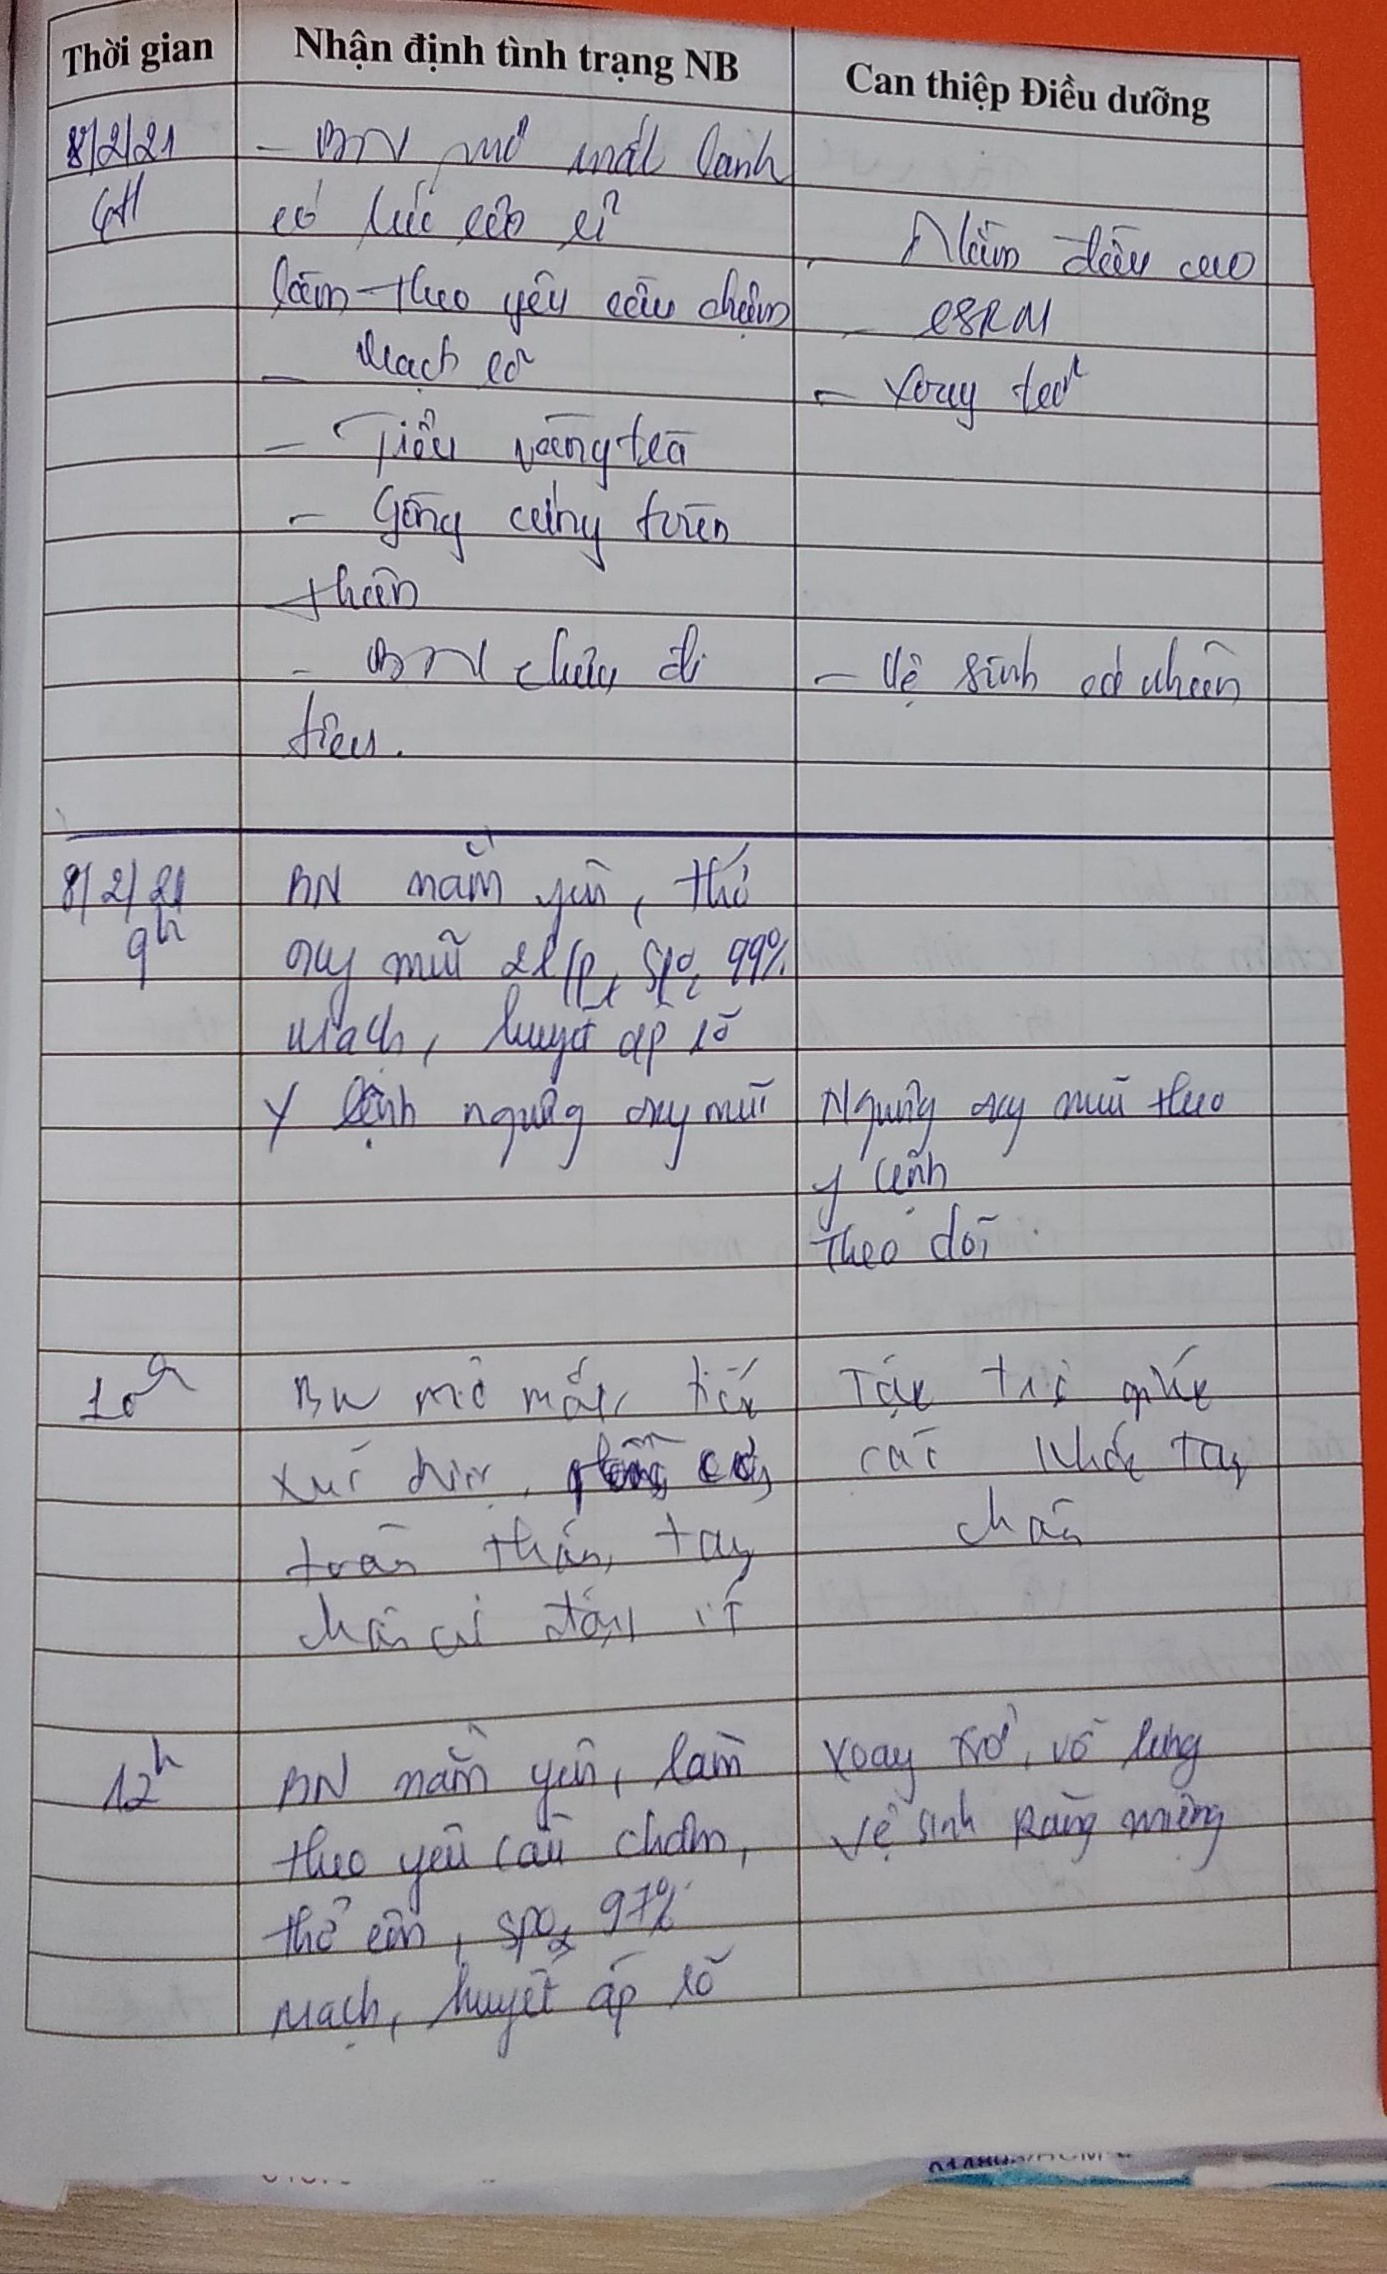 Thời gian
Nhận định tình trạng NB
Can thiệp Điều dưỡng
8/2/21
6H
- BN mở mắt lanh
có lúc
làm theo yêu cầu chậm
- Mạch rõ
- Tiểu vàng trà
- Gồng cứng toàn
thân
- BN chưa đi
tiêu.
- Nằm đầu cao
- CSRM
- Xoay trở
- Vệ sinh cá nhân
8/2/21
9h
BN nằm yên, thở
oxy mũi 2l/p, SpO2 99%
Mạch, huyết áp rõ
Y lệnh ngưng oxy mũi
Ngưng oxy mũi theo
y lệnh
Theo dõi.
10h
BN mở mắt, tiếp
xúc được, gồng cứng
toàn thân, tay
chân cử động ít
Tập trị gấp
các khớp tay
chân
12h
BN nằm yên, làm
theo yêu cầu chậm,
thở êm, SpO2 97%
Mạch, huyết áp rõ
Xoay trở, vỗ lưng
Vệ sinh răng miệng